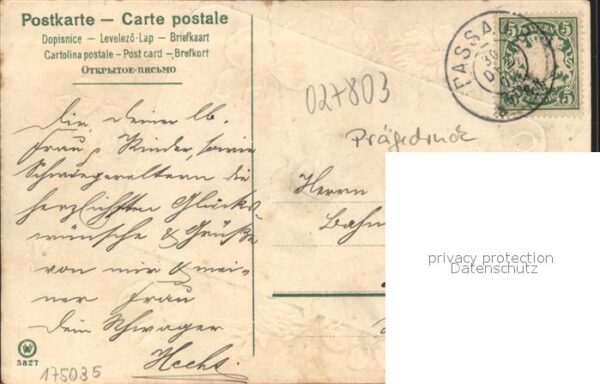 Postkarte — Carte postale
Dopisnice - Levelező-Lap - Briefkaart
Cartolina postale - Post card - Brefkort
Открытое письмо
PASSAU
5 5
5 5
027803
Prägedruck
Dir, deiner lb.
Frau & Kinder, sowie
Schwiegereltern die
herzlichsten Glücks-
wünsche & Grüße
von mir & mei-
ner Frau
Dein Schwager
Hecht
Herrn
Bahn
privacy protection
Datenschutz
W
5827
175035